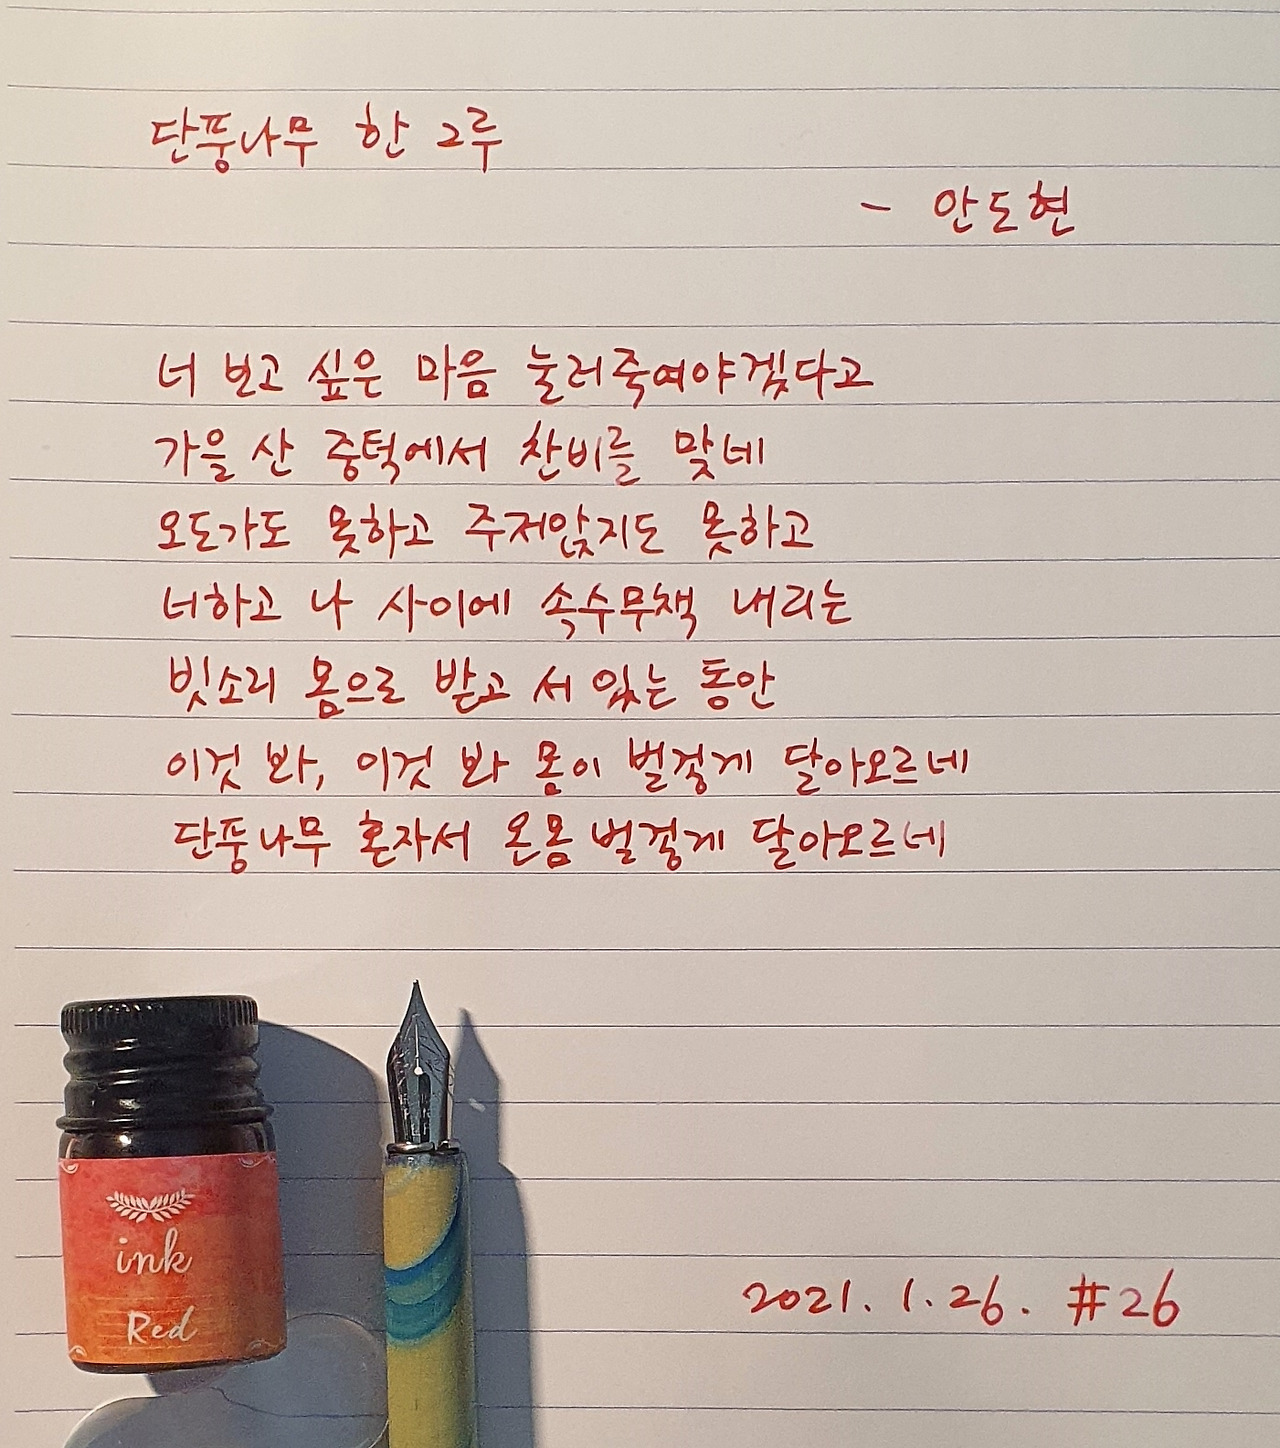 단풍나무 한 그루
- 안도현
너 보고 싶은 마음 눌러죽여야겠다고
가을 산 중턱에서 찬비를 맞네
오도가도 못하고 주저앉지도 못하고
너하고 나 사이에 속수무책 내리는
빗소리 몸으로 받고 서 있는 동안
이것 봐, 이것 봐 몸이 벌겋게 달아오르네
단풍나무 혼자서 온몸 벌겋게 달아오르네
ink
Red
2021. 1. 26. #26